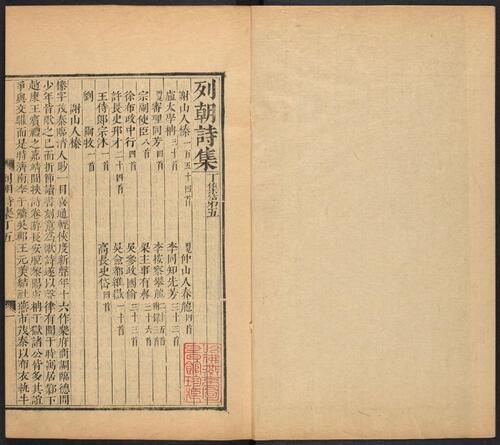 列朝詩集丁集第五
謝山人榛一百五十四首
盧太學柟三十首
宗副使臣八首
徐布政中行四首
許長史邦才二十四首
王侍郎宗沐一首
劉爾牧一首
李同知先芳三十首
李按察攀龍
梁主事有譽三十六首
吳參政國倫三十三首
吳僉都維嶽一十首
高長史岱四首
謝山人榛
榛字茂秦臨清人眇一目喜通輕俠度新聲年十六作樂府商調臨德間
少年皆歌之已而折節讀書刻意為歌詩遂以聲律有聞于時寓居鄴下
趙康王賓禮之嘉靖間挾詩卷游長安脫黎陽盧柟于獄諸公皆多其誼
爭與交驩而是時濟南李于鱗吳郡王元美結社燕市茂秦以布衣執牛
列朝詩集丁五